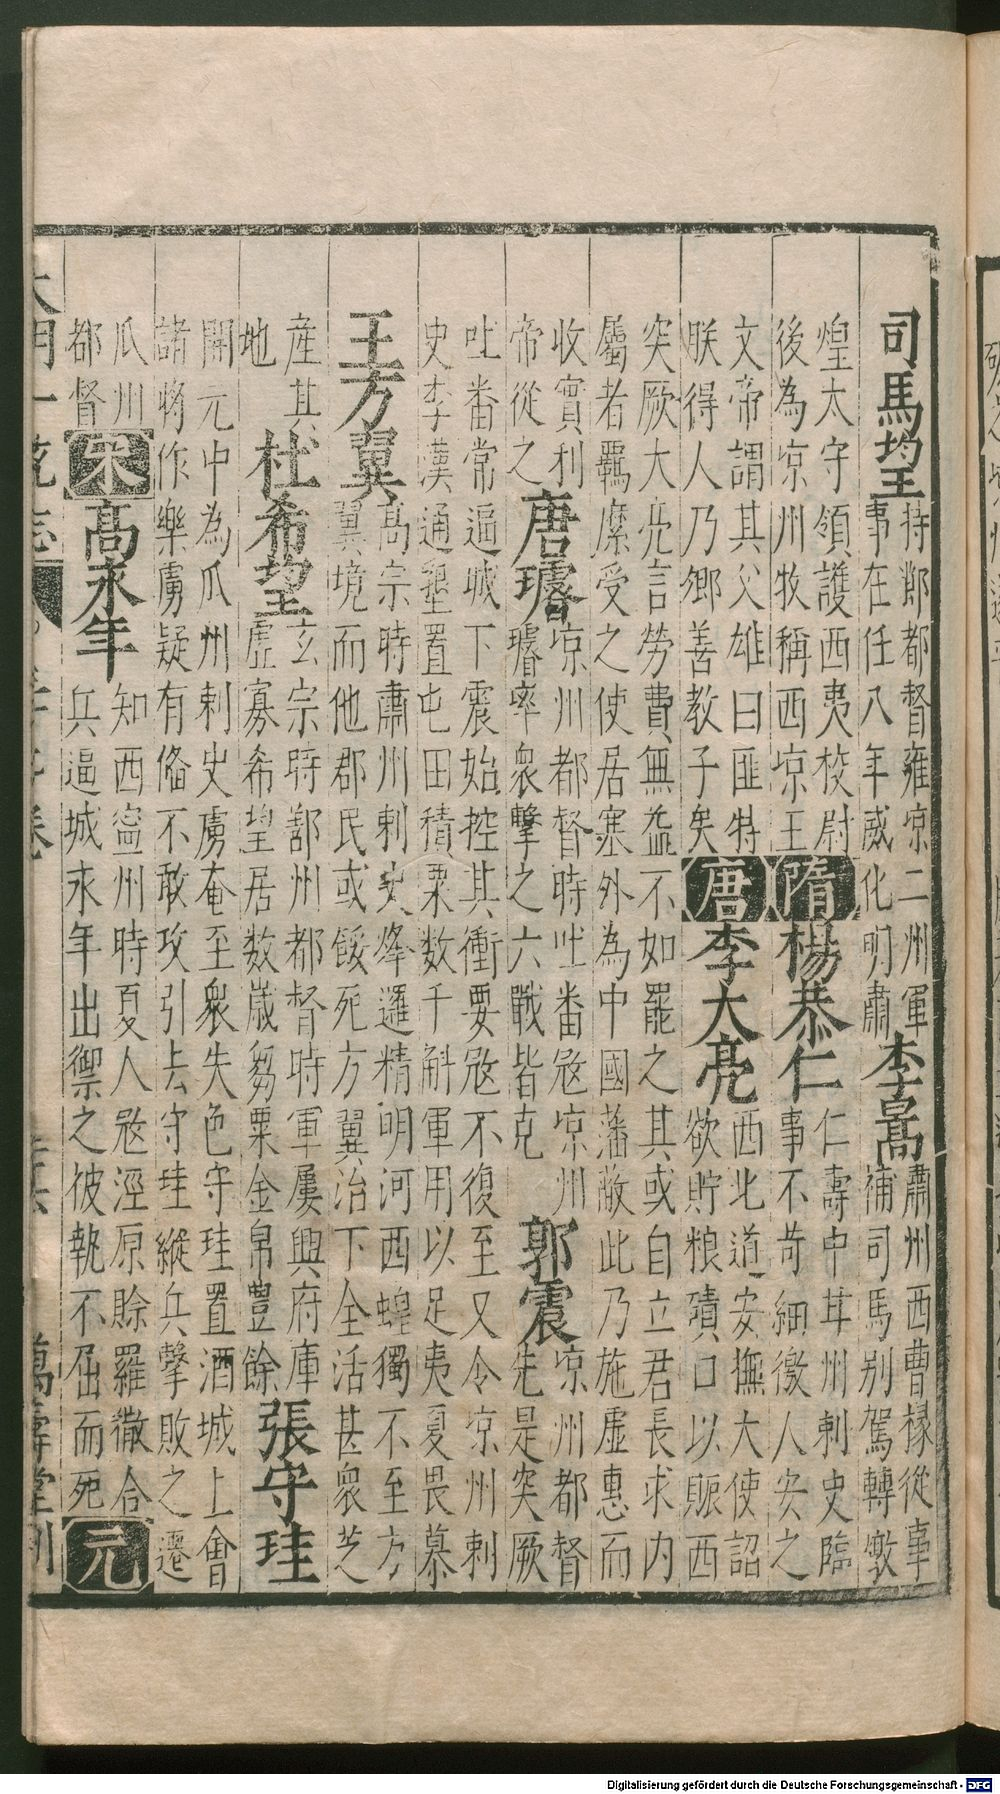 司馬望
持鄯都督雍凉二州軍
事在任八年威化明肅
李暠
肅州西曹椽從事
補司馬别駕轉墩
煌太守領護西夷校尉
後為凉州牧稱西凉王
隋
楊恭仁
仁壽中甘州刺史臨
事不苛細徼人安之
文帝謂其父雄曰匪特
朕得人乃鄉善教子矣
唐
李大亮
西北道安撫大使詔
欲貯粮磧口以賑西
突厥大亮言勞費無益不如罷之其或自立君長求内
屬者覊縻受之使居塞外為中國藩蔽此乃施虛惠而
收實利
帝從之
唐璿
凉州都督時吐番㓂凉州
璿率衆擊之六戰皆克
郭震
凉州都督
先是突厥
吐番常逼城下震始控其衝要㓂不復至又令凉州刺
史李漢通墾置屯田積粟数千斛軍用以足夷夏畏慕
王方翼
高宗時肅州刺史烽邏精明河西蝗獨不至方
翼境而他郡民或餒死方翼治下全活甚衆芝
産其
地
杜希望
玄宗時鄯州都督時軍屢興府庫
虛寡希望居数歲芻粟金帛豊餘
張守珪
開元中為瓜州刺史虜奄至衆失色守珪置酒城上會
諸將作樂虜疑有俻不敢攻引去守珪縱兵擊敗之遷
瓜州
都督
宋
高永年
知西寧州時夏人㓂涇原賒羅徹合
兵逼城永年出禦之彼執不屈而死
元
大明一統志 卷 萬壽堂刊
Digitalisierung gefördert durch die Deutsche Forschungsgemeinschaft - DFG